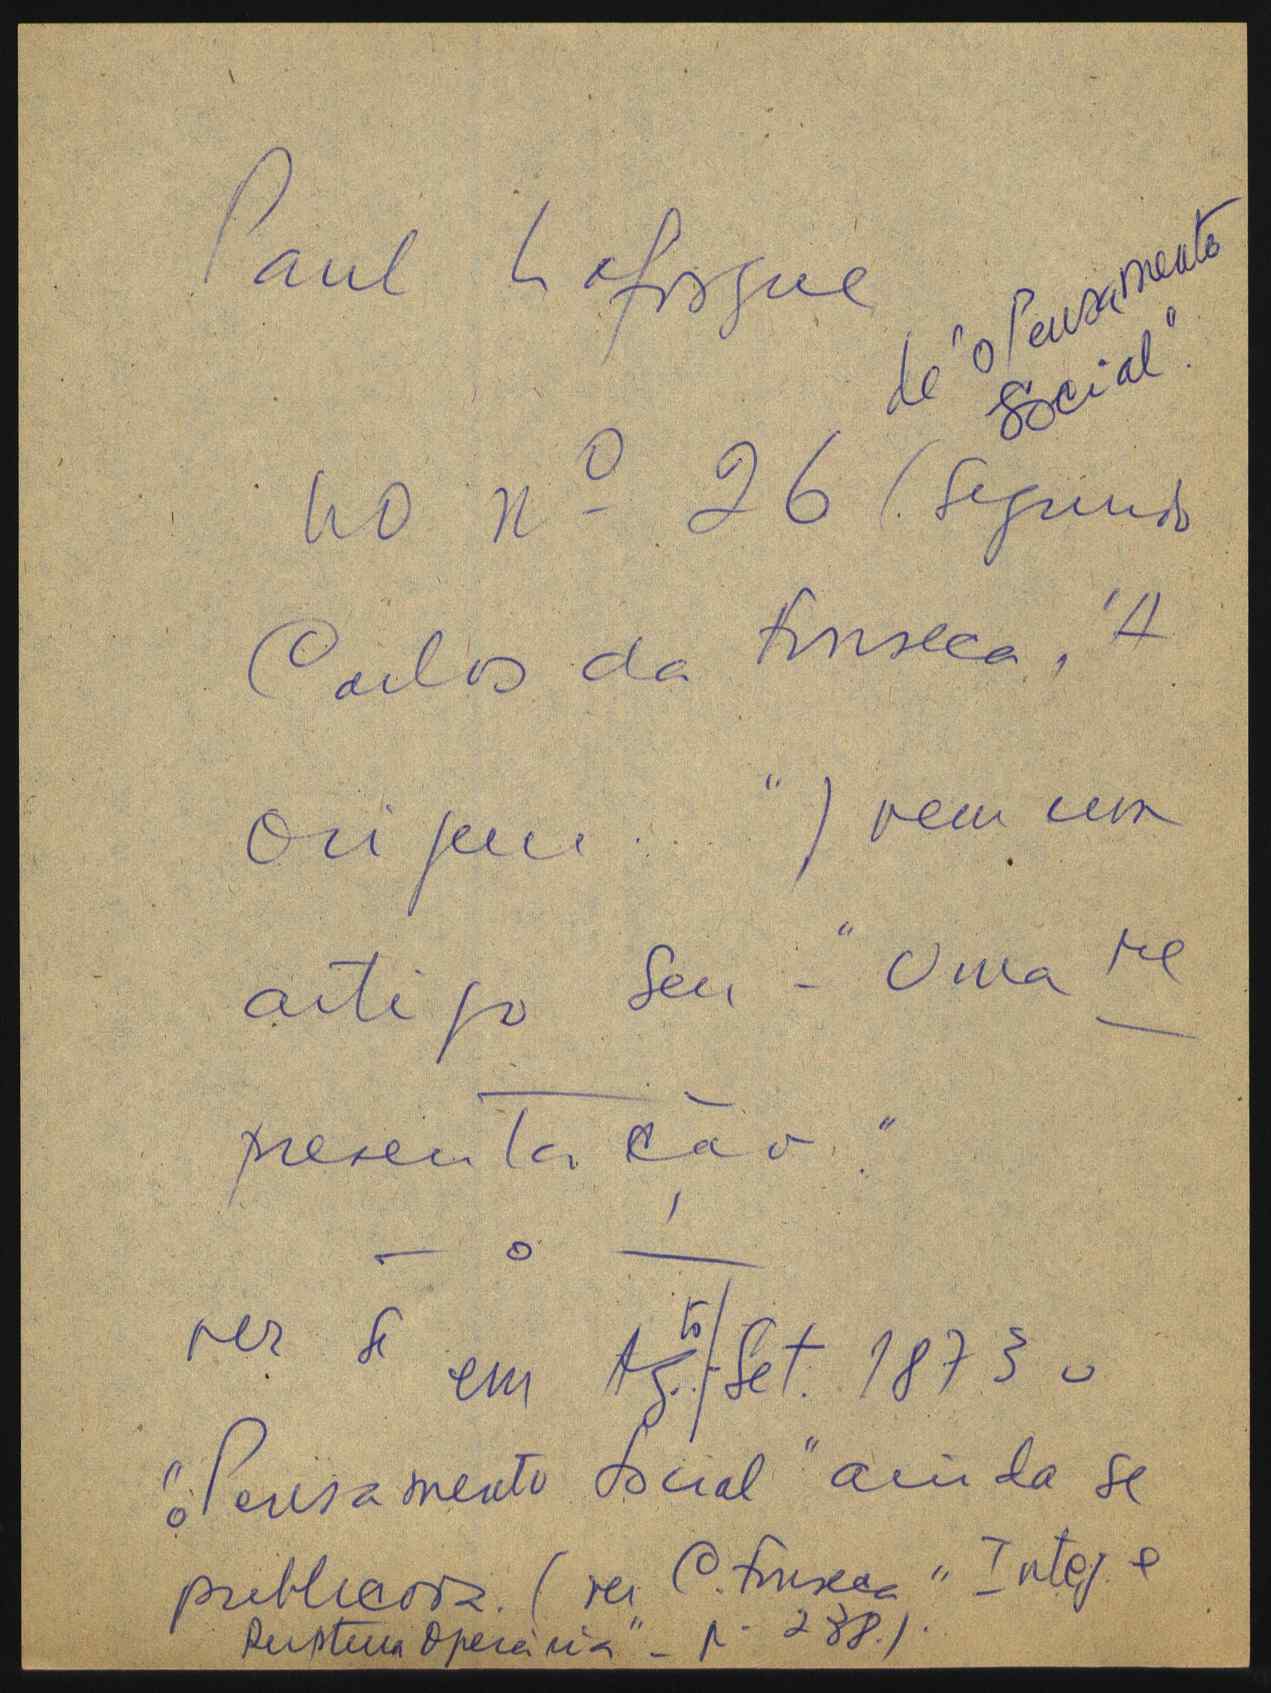 Paul Lafargue
de "o Pensamento
Social".
no nº 26 (Segundo
Carlos da Fonseca, "A
Origem . . . . ") vem um
artigo seu - "Uma re
presentação."
— o —
ver se em Ag.to/Set. 1873 o
"o Pensamento Social" ainda se
publicava. (ver C. Fonseca "Integ. e
Ruptura Operária" - p. 238.).